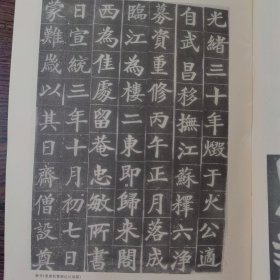 光緒三十年燬于火公適
自武昌移撫江蘇擇六淨
募資重修丙午月落成
臨江為樓二東即歸來閣
西為佳處留庵忠敏所書
日宣統三年十月初七日
蒙難歲以其日齋僧設奠